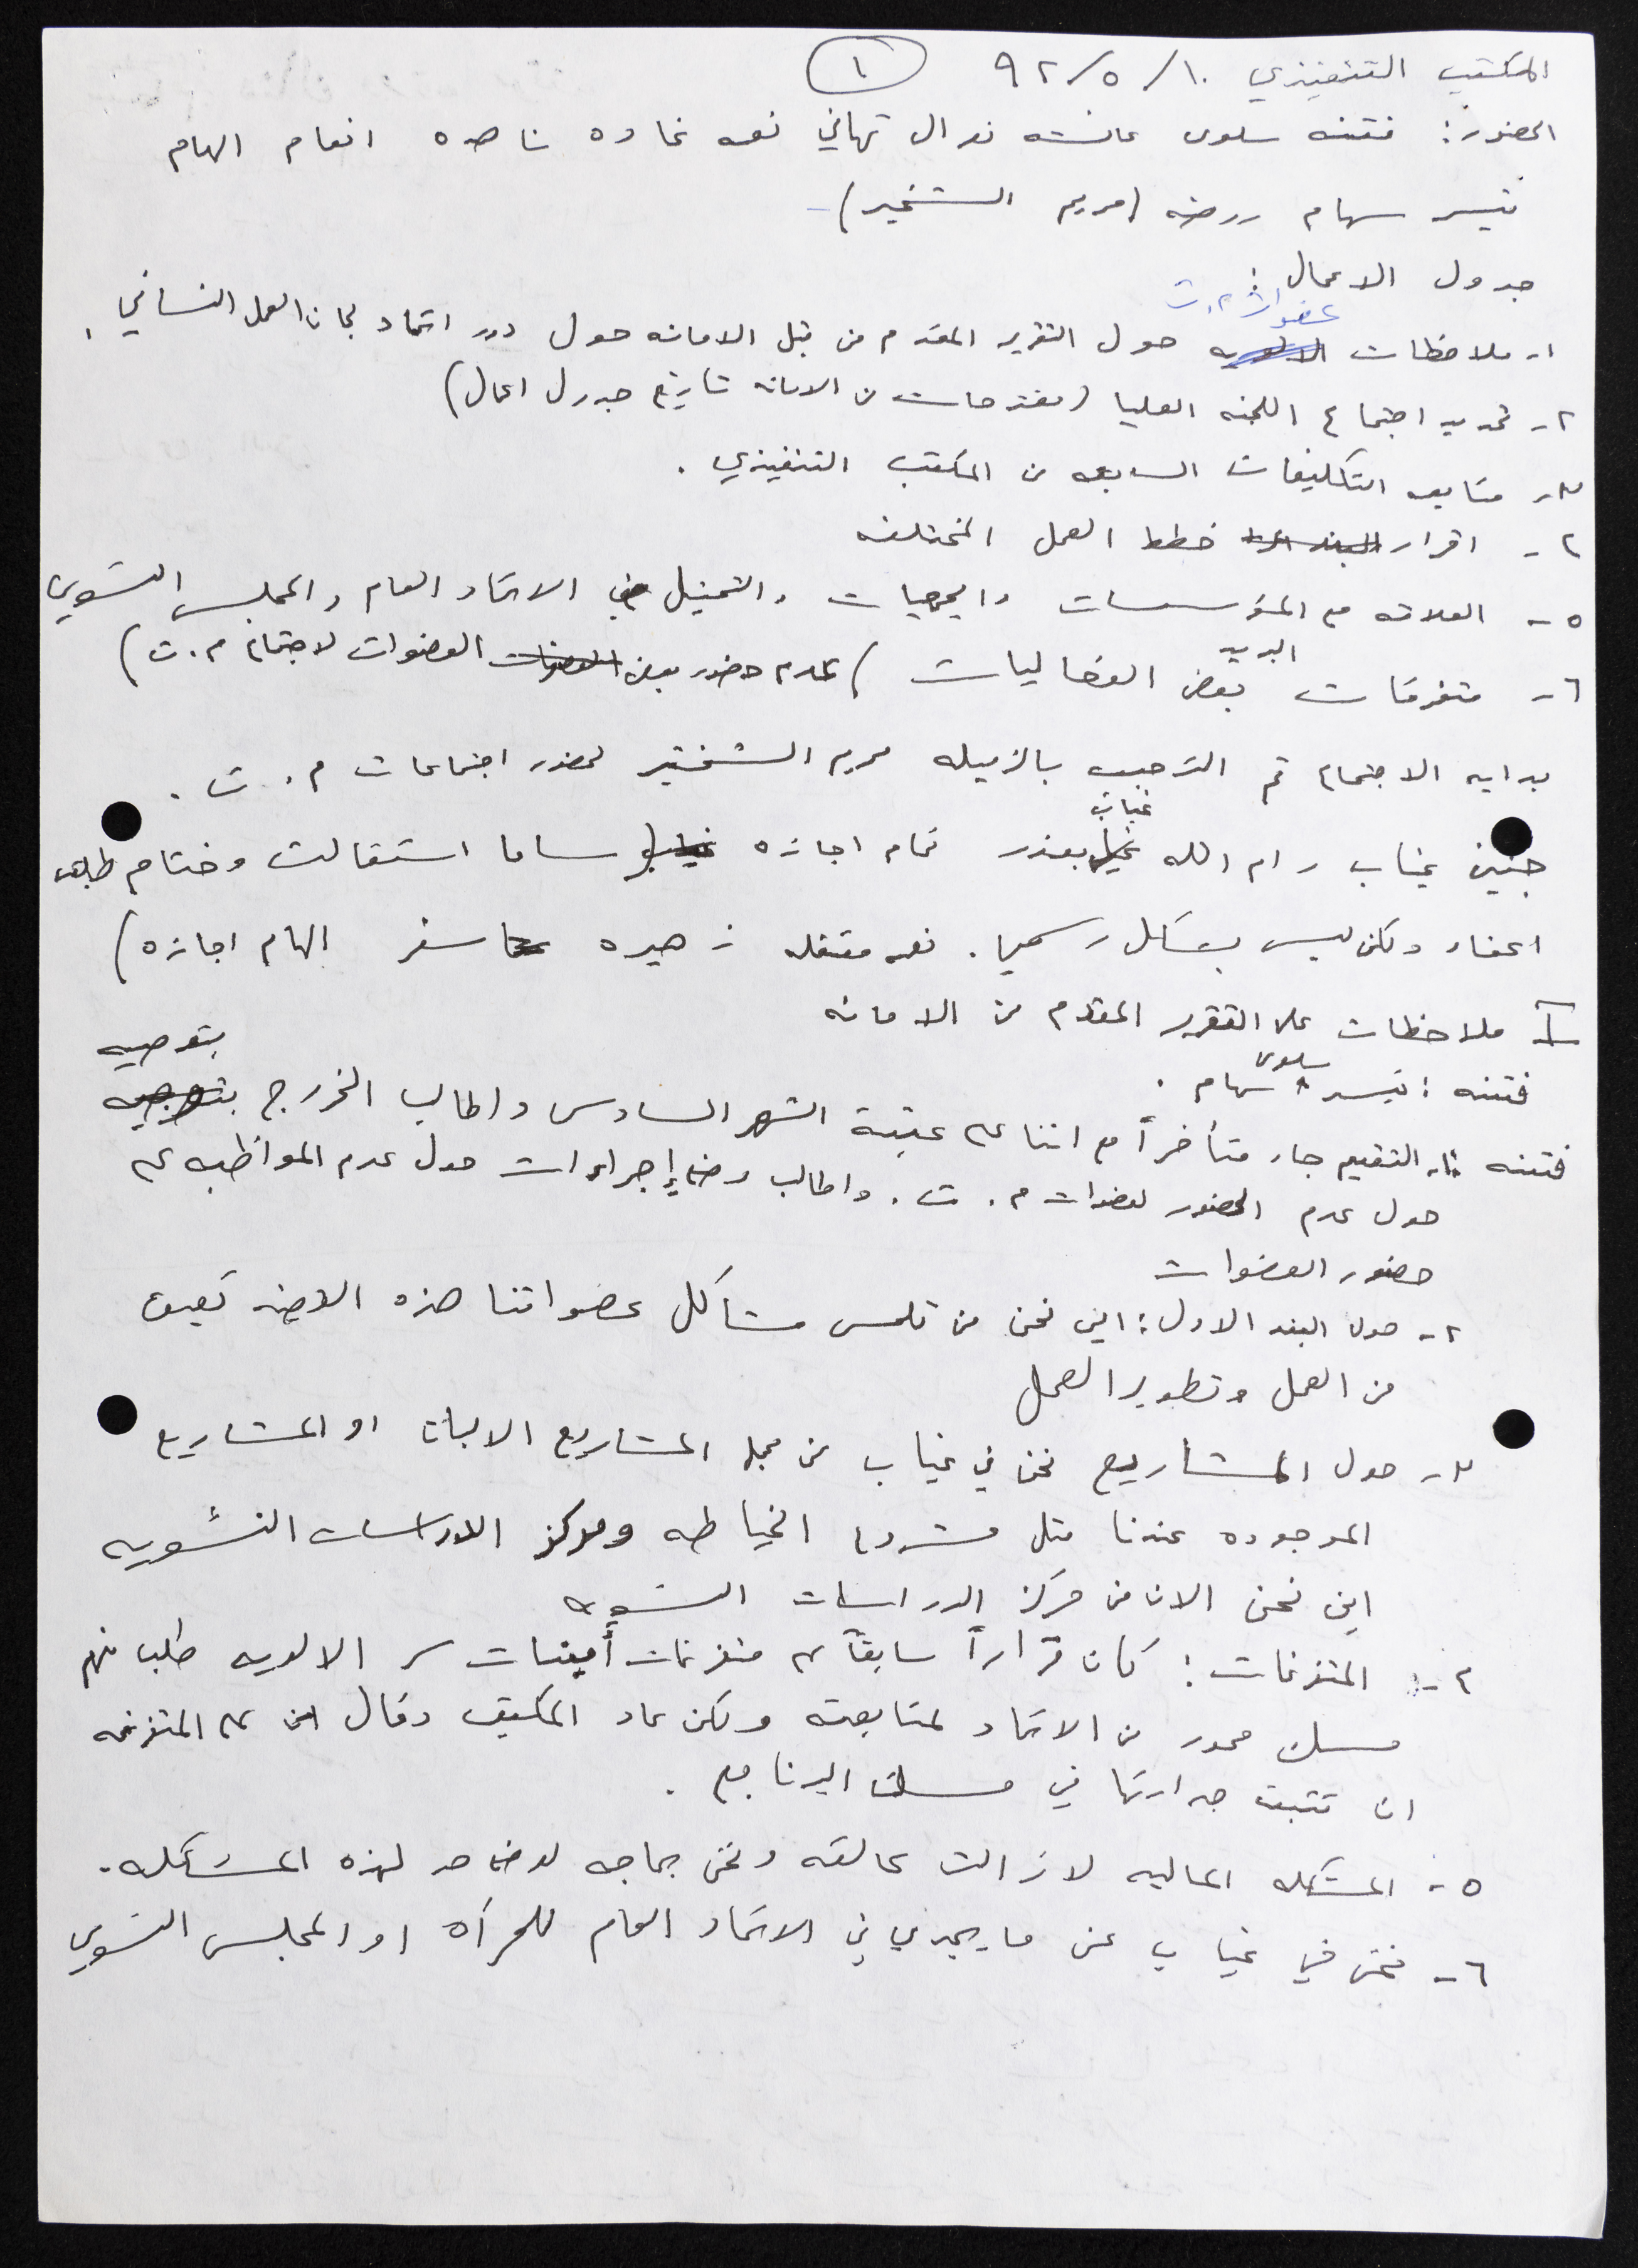 المكتب التنفيذي ١٠/٥/٩٢ ١
الحضور: فتنه سلوى عائشه نوال تهاني نعمه غاده ناهده انعام الهام
تيسر سهام روضه (مريم الشخير)
جدول الاعمال:
١- ملاحظات عضوات م.ت حول التقرير المقدم من قبل الامانه حول دور اتحاد لجان العمل النسائي.
٢- تحديد اجتماع اللجنه العليا (مقترحات من الامانه تاريخ جدول اعمال)
٣- متابعه التكليفات السابقه من المكتب التنفيذي.
٤- اقرار خطط العمل المختلفه
٥- العلاقه مع المؤسسات والجمعيات والتمثيل في الاتحاد العام والمجلس النسوي
٦- متفرقات البريد بعض الفعاليات (عدم حضور بعض العضوات لاجتماع م.ت)
بدايه الاجتماع تم الترحيب بالزميله مريم الشخير لحضور اجتماعات م.ت.
جنين غياب رام الله غياب بعذر تمام اجازه (ساما استقالت وختام طلبت
اعفاء ولكن ليس بشكل رسمي. نعمه معتقله زهيره سفر الهام اجازه)
I ملاحظات على التقرير المقدم من الامانه
فتنه: تيسر سلوى سهام.
فتنه ١- التقييم جاء متأخراً مع اننا على عتبة الشهر السادس واطالب الخروج بتوصيه
حول عدم الحضور لعضوات م.ت. واطالب وضع إجراءات حول عدم المواظبه على
حضور العضوات
٢- حول البند الاول: اين نحن من تلمس مشاكل عضواتنا هذه القضيه تعيق
من العمل وتطوير العمل
٣- حول المشاريع نحن في غياب من مجلة المشاريع الالبان او المشاريع
الموجوده عندنا مثل مشروع الخياطه ومركز الدراسات النسويه
اين نحن الان من مركز الدراسات النسويه
٤- المتفرغات: كان قراراً سابقاً على متفرغات أمينات سر الالويه طلب منهم
مسك محور من الاتحاد لمتابعته ولكن عاد المكتب وقال ان على المتفرغه
ان تثبت جدارتها في مسك البرنامج.
٥- المشكله الماليه لا زالت عالقه ونحن بحاجه لوضع حد لهذه المشكله.
٦- نحن في غياب عن ما يجري في الاتحاد العام للمرأه او المجلس النسوي